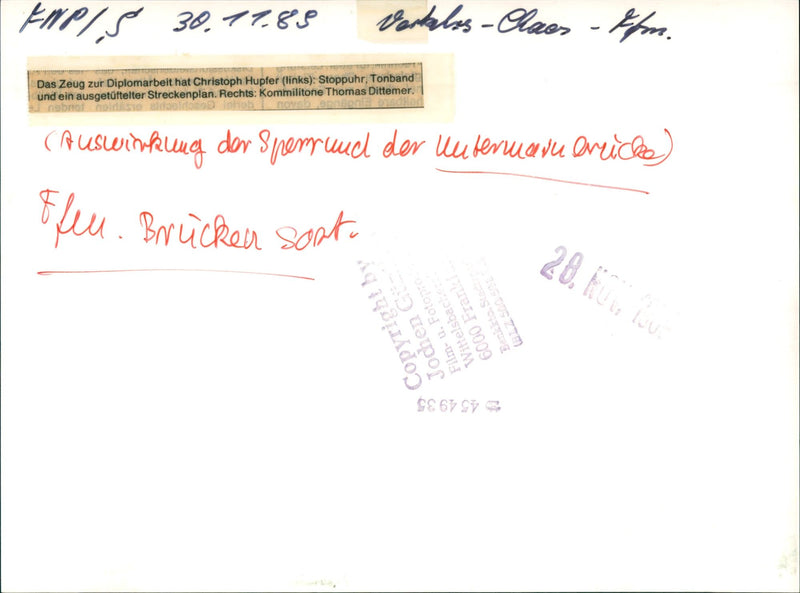 FNP/S 30.11.89 Verkehrs-Chaos - Ffm.
Das Zeug zur Diplomarbeit hat Christoph Hupfer (links): Stoppuhr, Tonband
und ein ausgetüftelter Streckenplan. Rechts: Kommilitone Thomas Dittemer.
(Auswirkung der Sperrund der Untermainbrücke)
Ffm. Brücken Sort.
Copyright by
Jochen
Film- u.
6000
454935
28. NOV.